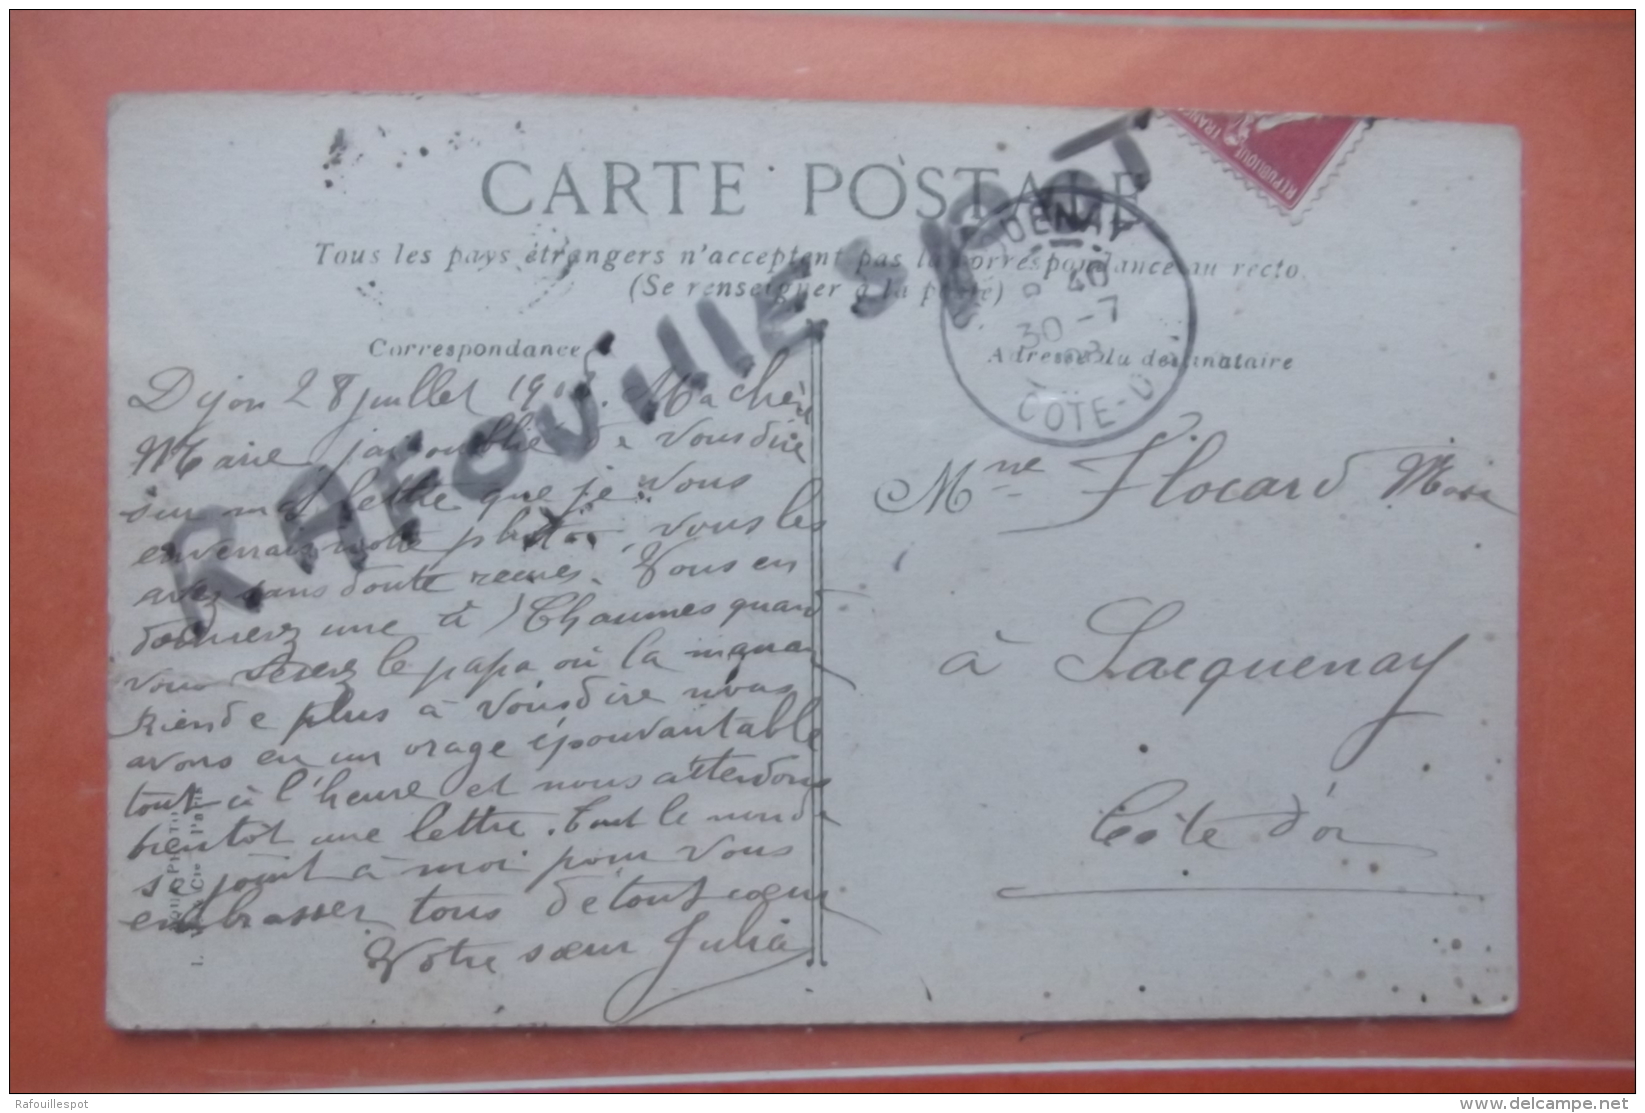 CARTE POSTALE
Tous les pays étrangers n'acceptent pas la correspondance au recto
(Se renseigner à la poste)
Correspondance
Adresse du destinataire
RAFOUILLESPOT
REPUBLIQUE FRANC
QUENAY
8 40
30 - 7
COTE-D
Dijon 28 juillet 190 . Ma chère
Marie j'ai oublié de vous dire
sur ma lettre que je vous
enverrais notre photo, vous les
avez sans doute recues. Vous en
donnerez une à Chaumes quand
vous serez le papa où la maman
Rien de plus à vous dire nous
avons eu un orage épouvantable
tout à l'heure et nous attendons
bientôt une lettre. Tout le monde
se joint à moi pour vous
embrasser tous de tout cœur
Votre sœur Julia
Mme Flocard
à Lacquenay
Côte d'or
Rafouillespot
www.delcampe.net